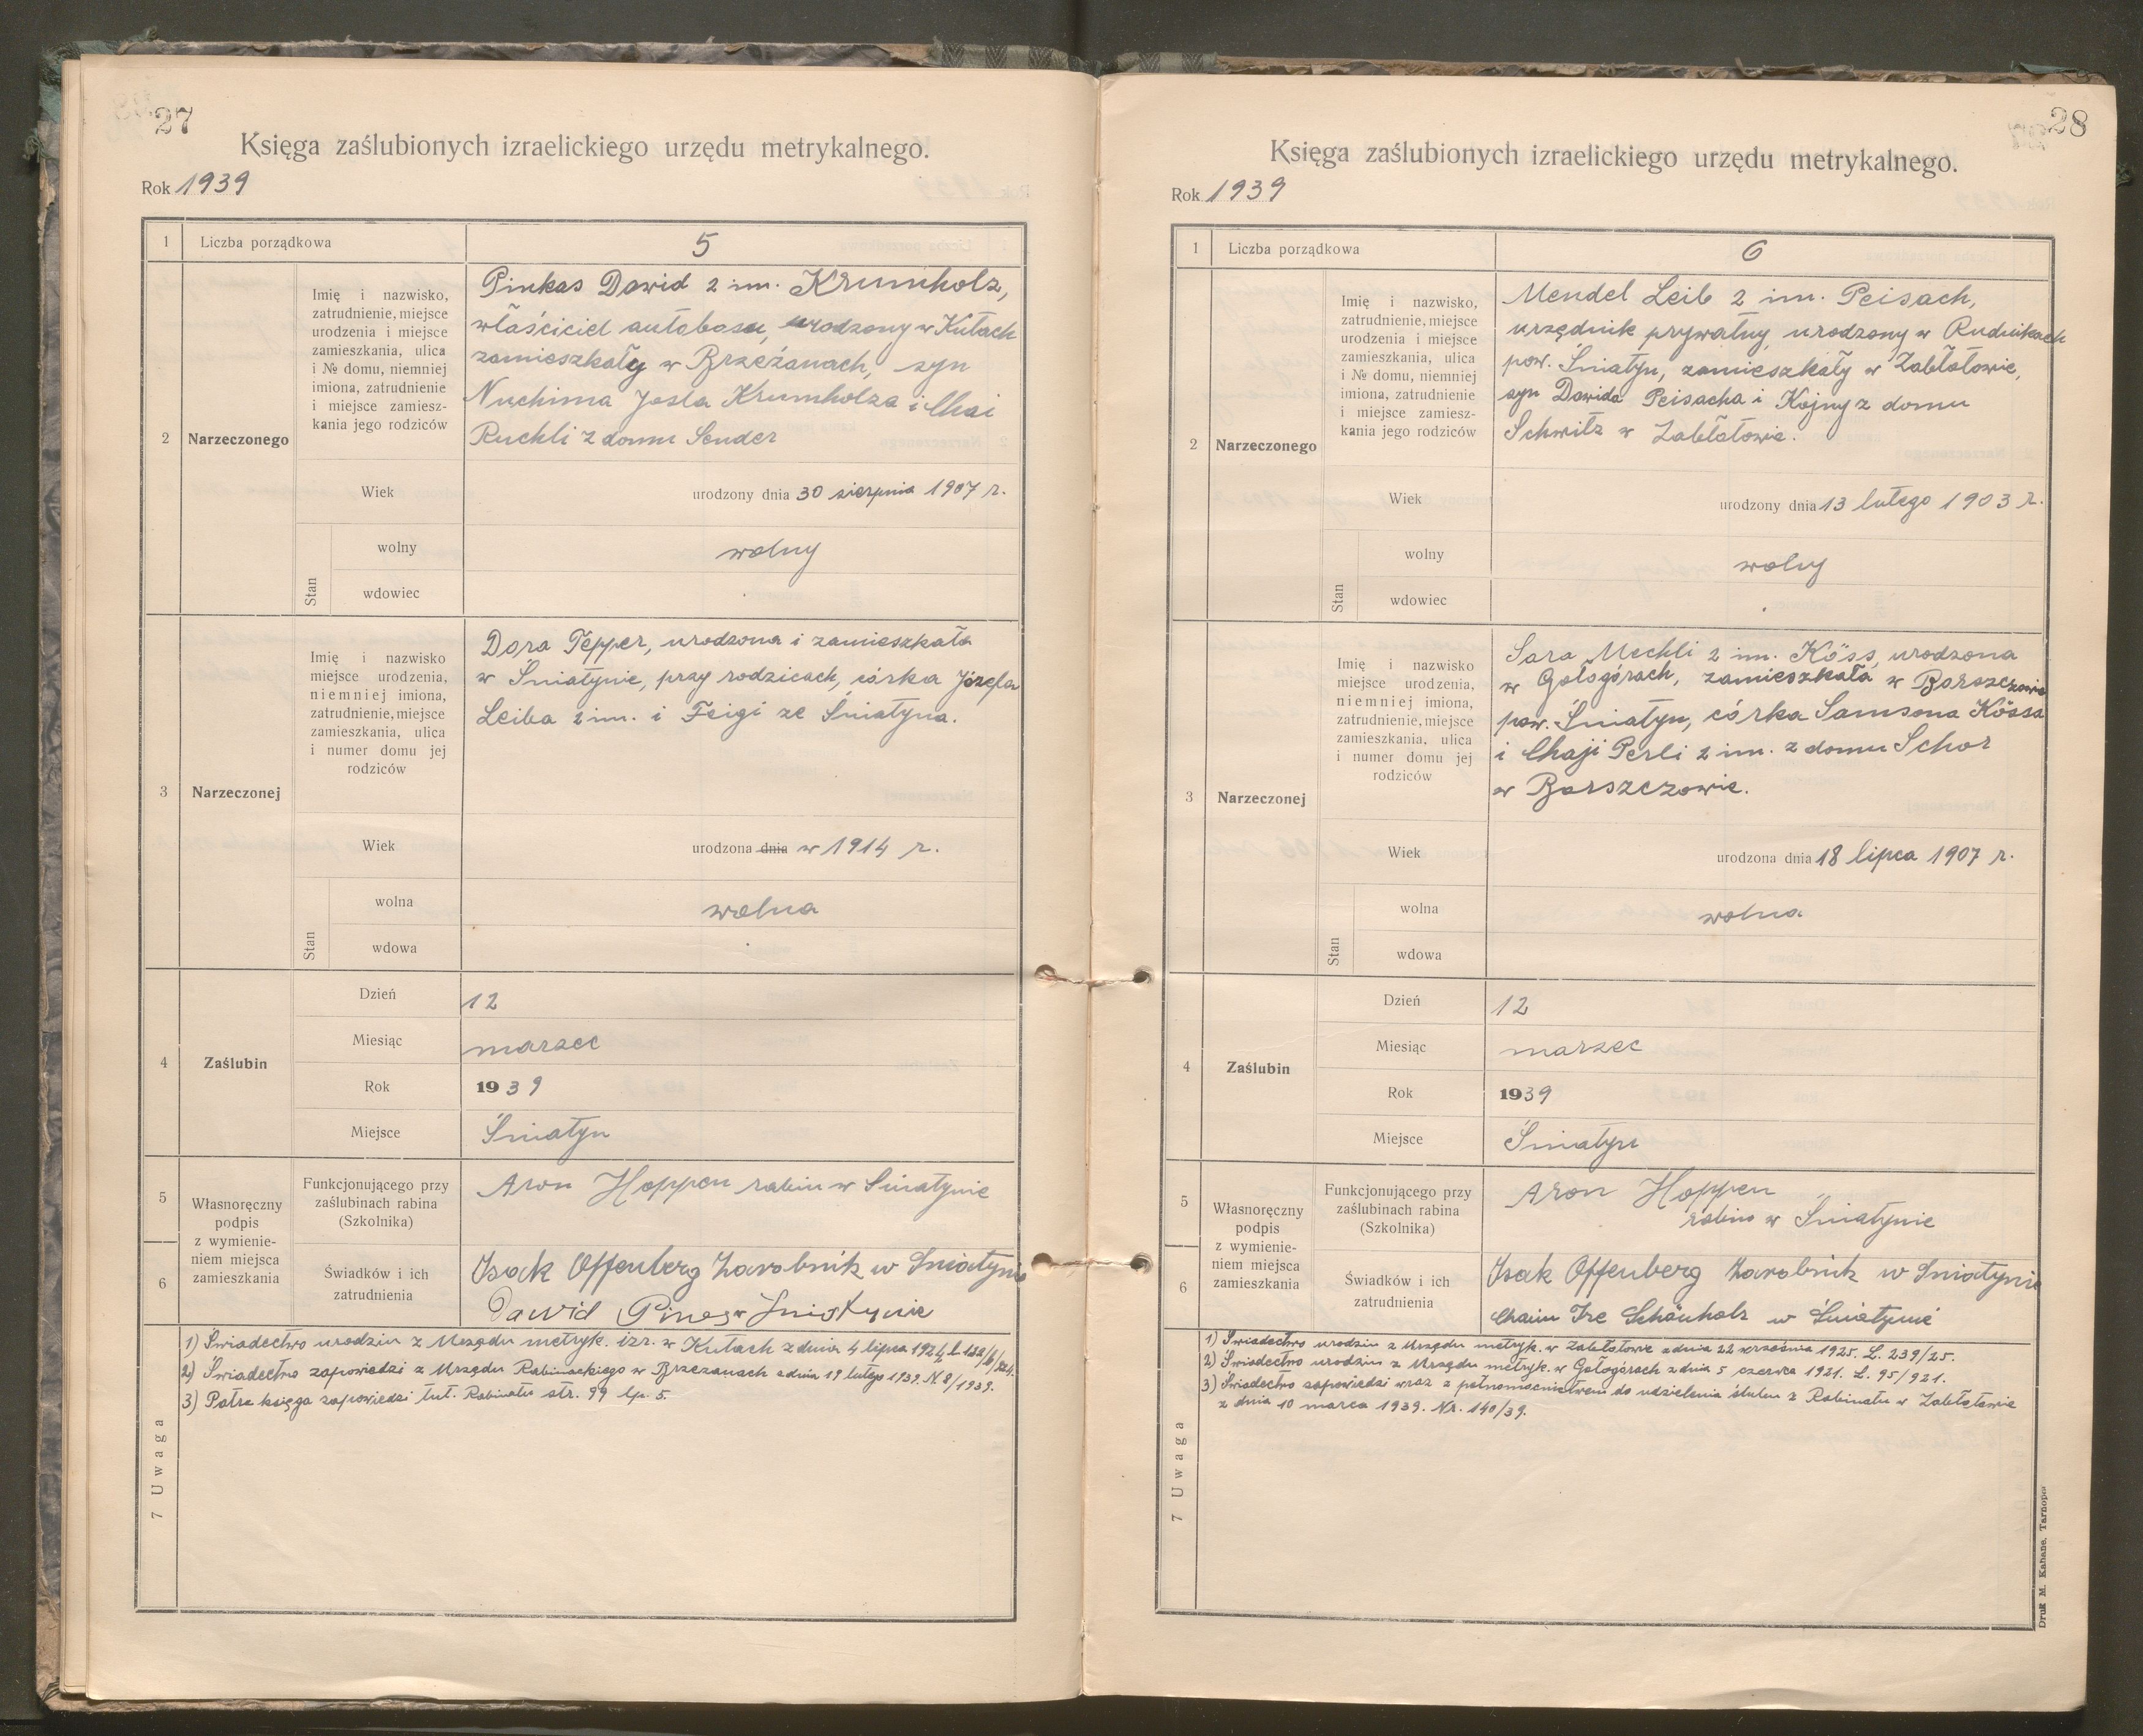 27
Księga zaślubionych izraelickiego urzędu metrykalnego.
Rok 1939
1 Liczba porządkowa 5
2 Narzeczonego
Imię i nazwisko,
zatrudnienie, miejsce
urodzenia i miejsce
zamieszkania, ulica
i № domu, niemniej
imiona, zatrudnienie
i miejsce zamiesz-
kania jego rodziców
Pinkas Dawid 2 im. Krumholz,
właściciel autobusu, urodzony w Kutach
zamieszkały w Brzeżanach, syn
Nuchima Josla Krumholza i Chai
Ruchli z domu Sender
Wiek urodzony dnia 30 sierpnia 1907 r.
Stan
wolny wolny
wdowiec
3 Narzeczonej
Imię i nazwisko
miejsce urodzenia,
niemniej imiona,
zatrudnienie, miejsce
zamieszkania, ulica
i numer domu jej
rodziców
Dora Tepper, urodzona i zamieszkała
w Śniatynie, przy rodzicach, córka Józefa
Leiba 2 im. i Feigi ze Śniatyna.
Wiek urodzona dnia w 1914 r.
Stan
wolna wolna
wdowa
4 Zaślubin
Dzień 12
Miesiąc marzec
Rok 1939
Miejsce Śniatyn
5
6
Własnoręczny
podpis
z wymienie-
niem miejsca
zamieszkania
Funkcjonującego przy
zaślubinach rabina
(Szkolnika)
Aron Hoppen rabin w Śniatynie
Świadków i ich
zatrudnienia
Isak Offenberg Zarobnik w Sniatynie
Dawid Pines w Sniatynie
7 Uwaga
1) Świadectwo urodzin z Urzędu metryk. izr. w Kutach z dnia 4 lipca 1924
2) Świadectwo zapowiedzi z Urzędu Rabinackiego w Brzeżanach z dnia 19 lutego 1939. N 8/1939.
3) Patrz księga zapowiedzi tut. Rabinatu str. 99 lp. 5.
28
Księga zaślubionych izraelickiego urzędu metrykalnego.
Rok 1939
1 Liczba porządkowa 6
2 Narzeczonego
Imię i nazwisko,
zatrudnienie, miejsce
urodzenia i miejsce
zamieszkania, ulica
i № domu, niemniej
imiona, zatrudnienie
i miejsce zamiesz-
kania jego rodziców
Mendel Leib 2 im. Peisach,
urzędnik prywatny, urodzony w Rudnikach
pow. Śniatyn, zamieszkały w Zabłotowie,
syn Dawida Peisacha i Kojny z domu
Schwitz w Zabłotowie.
Wiek urodzony dnia 13 lutego 1903 r.
Stan
wolny wolny
wdowiec
3 Narzeczonej
Imię i nazwisko
miejsce urodzenia,
niemniej imiona,
zatrudnienie, miejsce
zamieszkania, ulica
i numer domu jej
rodziców
Sara Mechli 2 im. Köss, urodzona
w Gołogórach, zamieszkała w Borszczowie
pow. Śniatyn, córka Samsona Kössa
i Chaji Perli 2 im. z domu Schor
w Borszczowie.
Wiek urodzona dnia 18 lipca 1907 r.
Stan
wolna wolna
wdowa
4 Zaślubin
Dzień 12
Miesiąc marzec
Rok 1939
Miejsce Śniatyn
5
6
Własnoręczny
podpis
z wymienie-
niem miejsca
zamieszkania
Funkcjonującego przy
zaślubinach rabina
(Szkolnika)
Aron Hoppen
rabin w Śniatynie
Świadków i ich
zatrudnienia
Isak Offenberg Zarobnik w Sniatynie
Chaim Ire Schönholz w Śniatynie
7 Uwaga
1) Świadectwo urodzin z Urzędu metryk. w Zabłotowie z dnia 22 września 1925. L. 239/25.
2) Świadectwo urodzin z Urzędu metryk. w Gołogórach z dnia 5 czerwca 1921. L. 95/921.
3) Świadectwo zapowiedzi wraz z pełnomocnictwem do udzielenia ślubu z Rabinatu w Zabłotowie
z dnia 10 marca 1939. Nr. 140/39.
Druk M. Kahane, Tarnopol